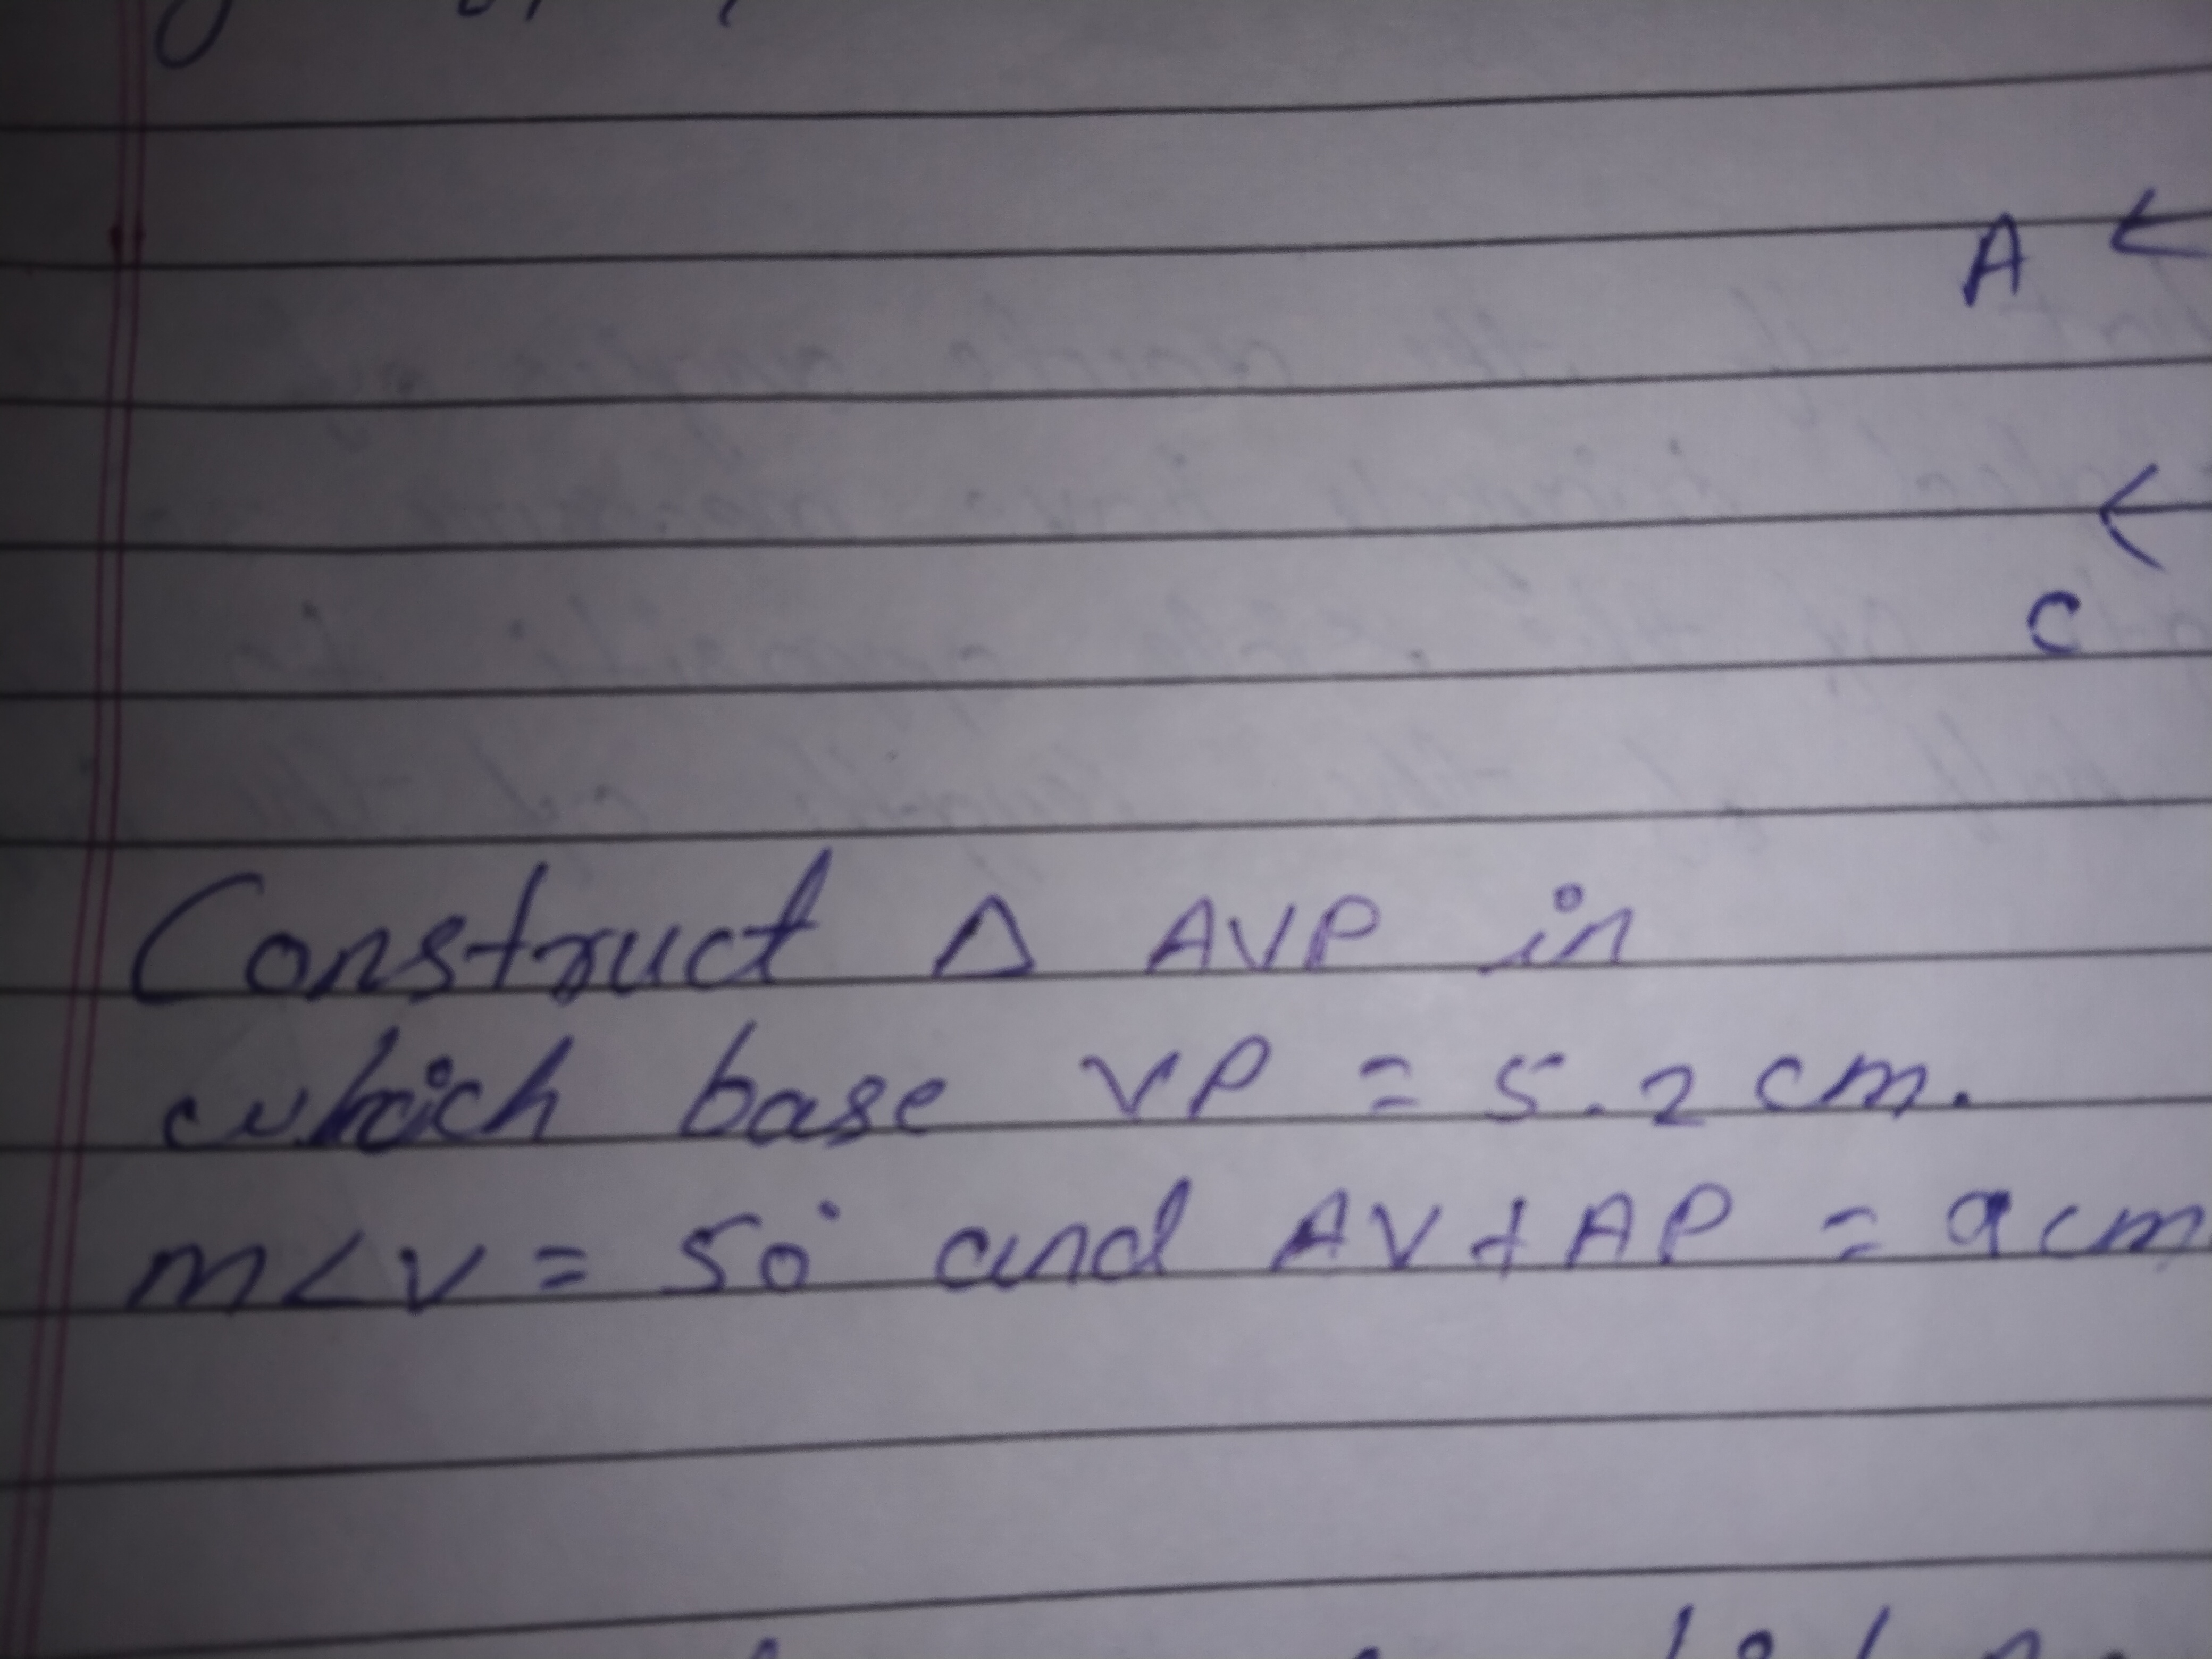 A
C
Construct Δ AVP in
which base VP = 5.2 cm.
m∠V = 50° and AV + AP = 9 cm